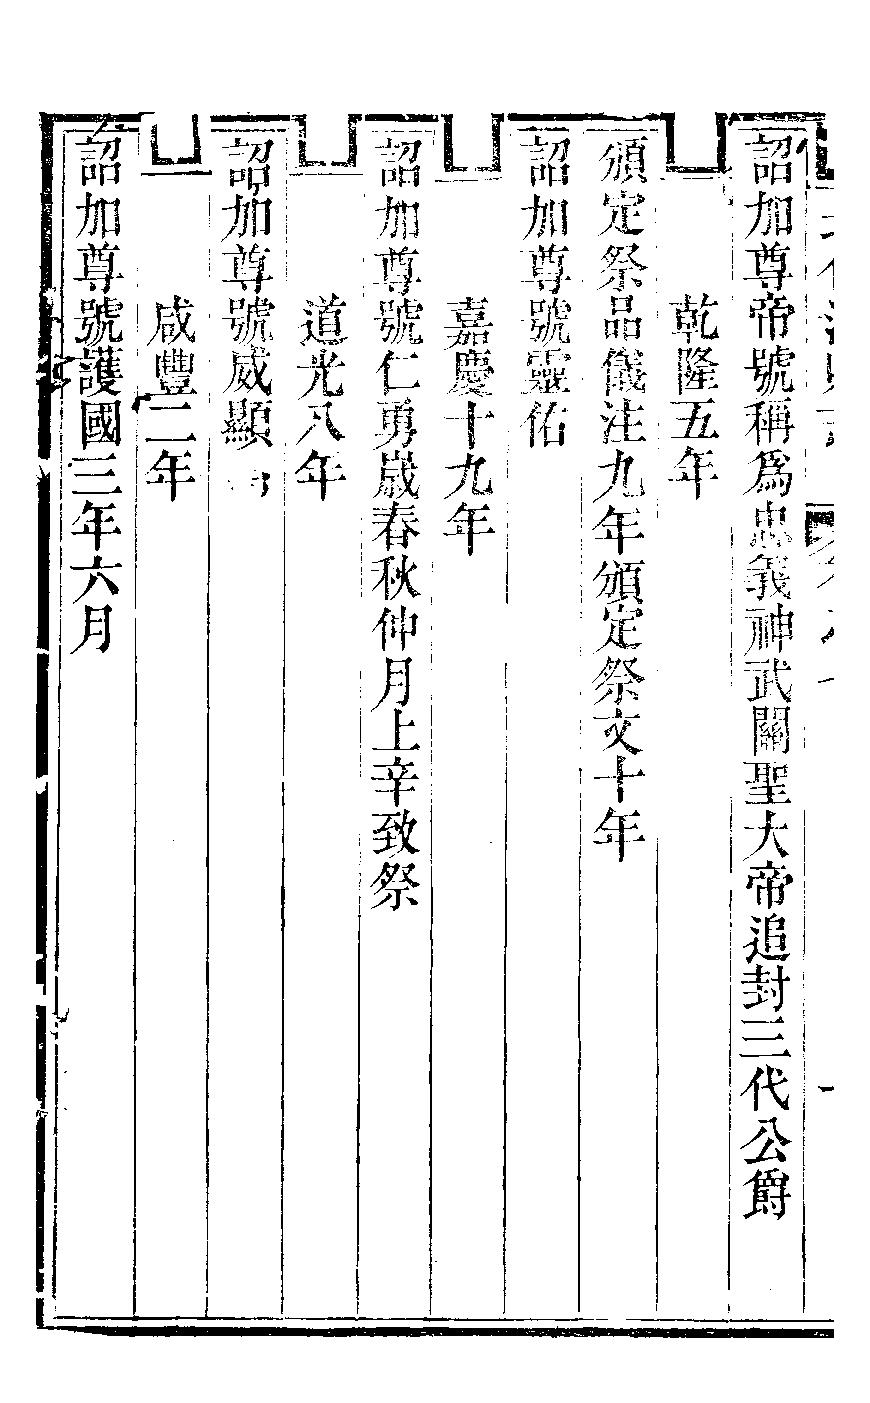 詔加尊帝號稱為忠義神武關聖大帝追封三代公爵
乾隆五年
頒定祭品儀注九年頒定祭文十年
詔加尊號靈佑
嘉慶十九年
詔加尊號仁勇歲春秋仲月上辛致祭
道光八年
詔加尊號威顯
咸豐二年
詔加尊號護國三年六月